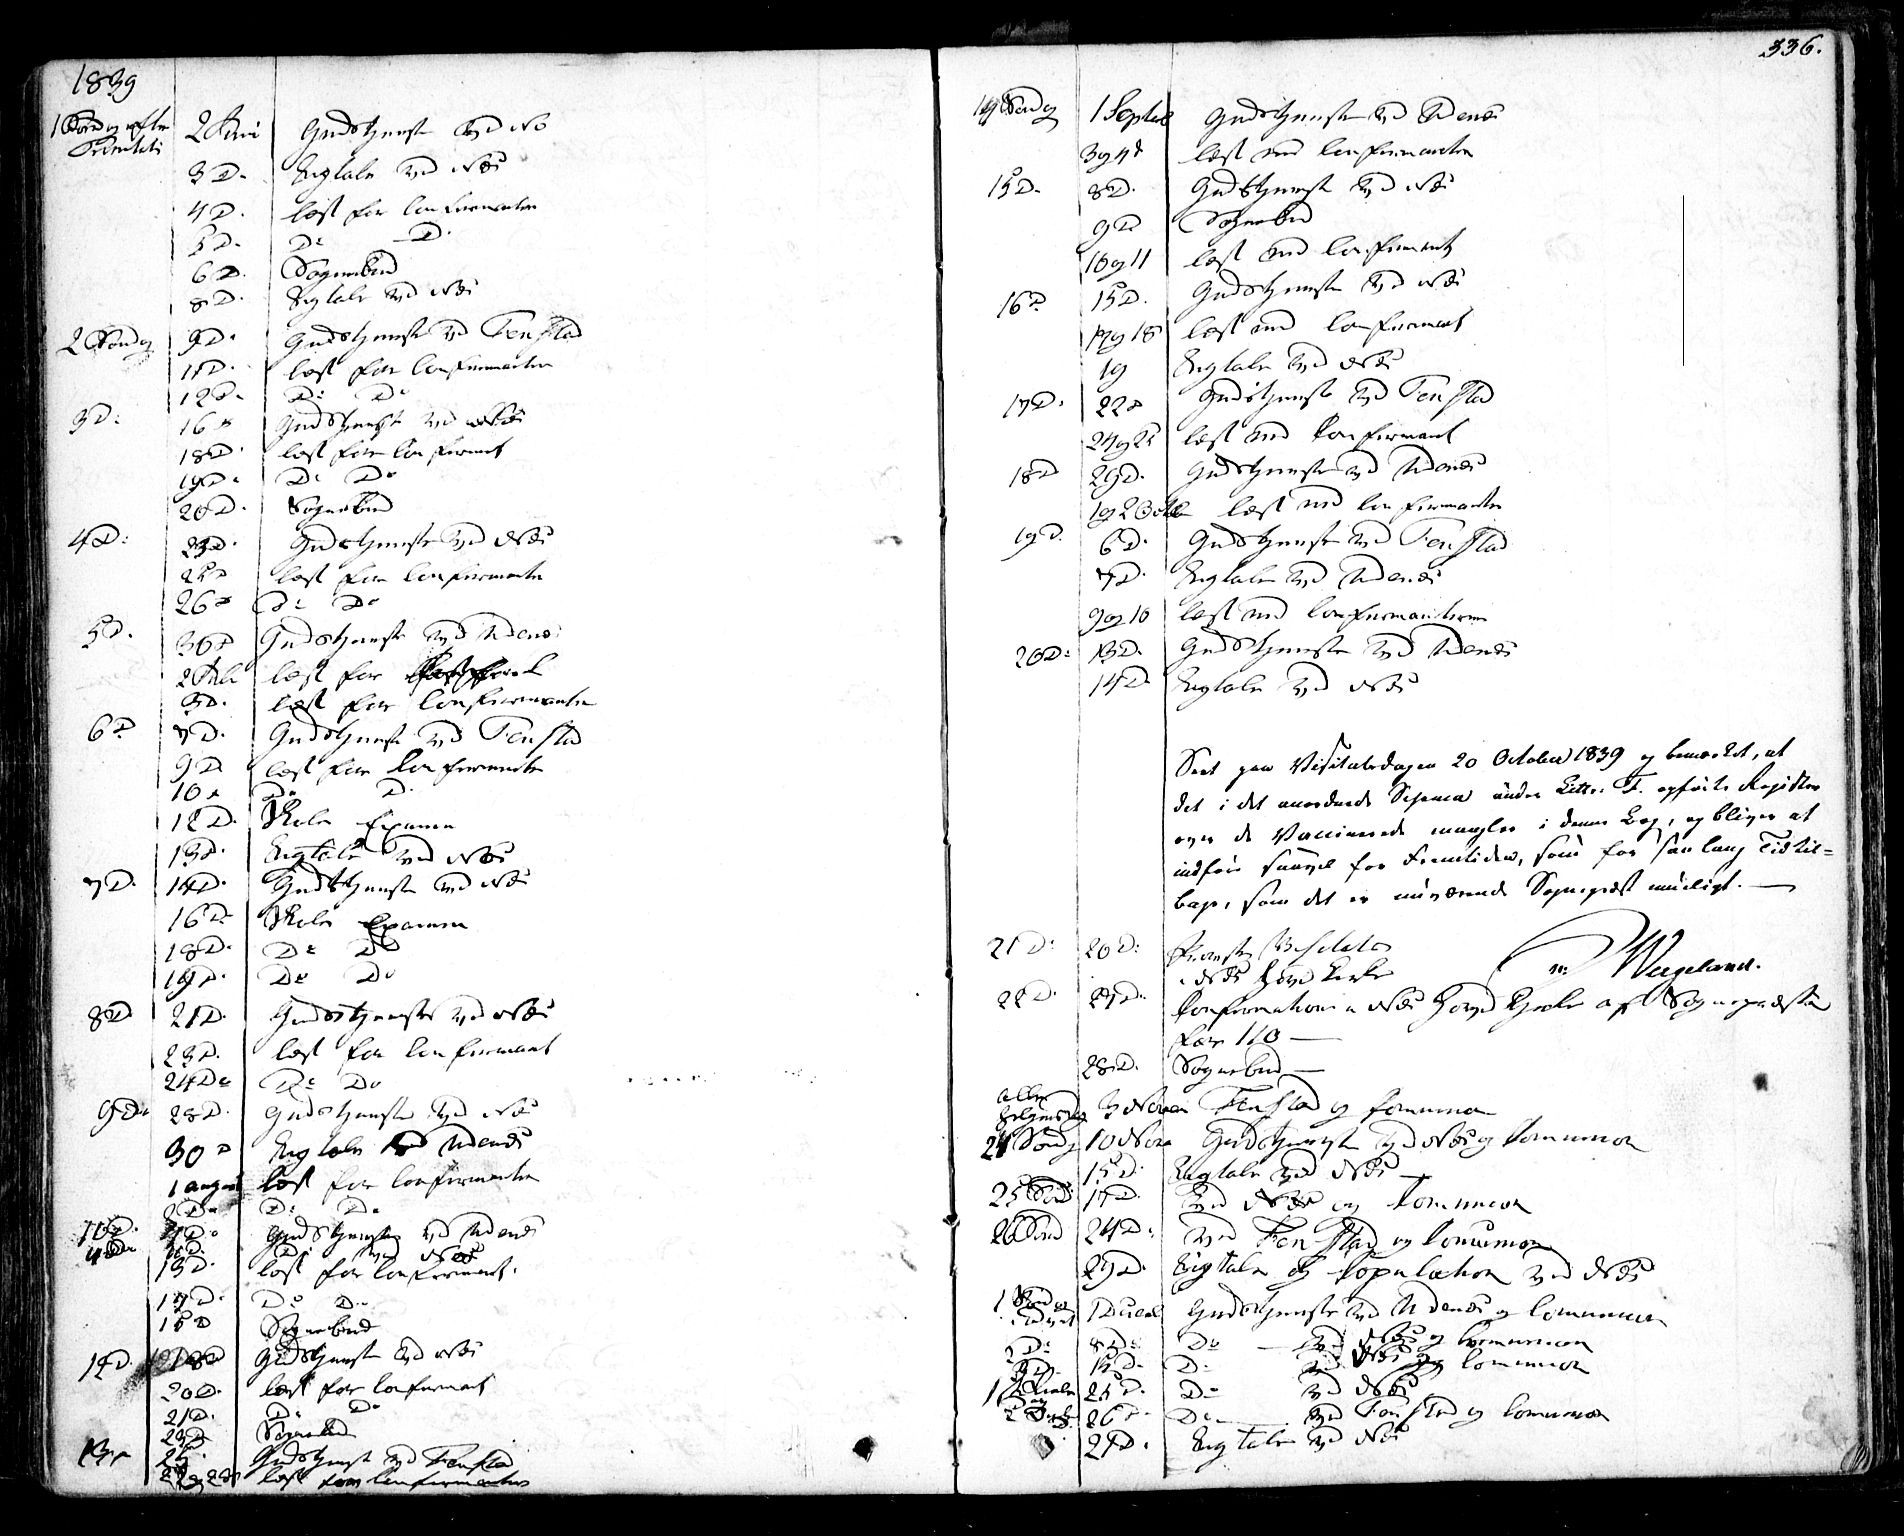 1839
1 Søndag efter 2 Juni Gudstjeneste ved Næs
Trinitatis
3 D. Ligtale ved Næs
4 D. læst for Confirmanter
5 D. Do D.
6 D. Sognebud
8 D. Ligtale ved Næs
2 Søndag 9 D. Gudstjeneste ved Fenstad
11 D. læst for Confirmanter
12 D. Do Do
3 D: 16 D Gudstjenest ved Næs
18 D. læst for Confirmant
19 D. Do Do
20 D. Sognebud
4 D: 23 D. Gudstjeneste ved Næs
25 D læst for Confirmanter
26 D Do Do
5 D. 30 D Gudstjeneste ved Udenes
2 Juli læst for
3 D. læst for Confirmanter
6 D 7 D. Gudstjeneste ved Fenstad
9 D læst for Confirmanter
10 D D. D.
12 D. Skole Examen
13 D. Ligtale ved Næs
7 D. 14 D. Gudstjeneste ved Næs
16 D. Skole Examen
18 D. Do Do
19 D. Do Do
8 D 21 D. Gudstjeneste ved Næs
23 D. læst for Confirmant
24 D. Do Do
9 D. 28 D. Gudstjeneste ved Næs
30 D Ligtale ved Udenes
1 august læst for Confirmanter
2 D. D. D.
10 D. 4 D. Gudstjeneste ved Udenes
11 D. D. ved Næs
13 D. læst for Confirmant.
Do D.
15 D Sognebud
12 D. 18 D Gudstjeneste ved Næs
20 D. læst for Confirmant
21 D. D. Do
23 D Sognebud
13 D 25. Gudstjenest ved Fenstad
læst for Confirmanter
336.
14 Søndag 1 Septbr Gudstjeneste ved Udenes
3 og 4 D læst med Confirmanter
15 D. 8 D. Gudstjeneste ved Næs
9 D Sognebud
10 og 11 læst med Confirmant
16 D 15 D. Gudstjeneste ved Næs
17 og 18 læst med Confirmant
19 Ligtale ved Næs
17 D. 22 D Gudstjeneste ved Fenstad
24 og 25 læst med Confirmant
18 D 29 D. Gudstjeneste ved Udenes
1 og 2 Octb læst med Confirmanter
19 D. 6 D. Gudstjeneste ved Fenstad
7 D. Ligtale ved Udenes
9 og 10 læst med Confirmanterne
20 D: 13 D. Gudstjeneste ved Udenes
14 D Ligtale ved Næs
Seet paa Visitatsdagen 20 October 1839 og bemærket, at
det i det anordnede Schema under Litter F. opførte Register
over de Vaccinerede mangler i denne Bog, og bliver at
indføre saavel for Fremtiden, som for saa lang Tid til=
bage, som det er nuværende Sognepræst mueligt.
21 D: 20 D: Provste Visitats
i Næs Hovd Kirke
N: Wergeland.
22 D. 27 D. Confirmation i Næs Hovd Kirke af Sognepræsten
for 110
28 D. Sognebud
Alle
Helgensdag 3 Novem Fenstad og Comunion
24 Sønd 10 Nov Gudstjenest ved Næs og Comunion
15 D. Ligtale ved Næs
25 Sønd 17 D. ved Næs og Comunion
26 Sønd 24 D. ved Fenstad og Comunion
29 D. Ligtale og Copulation ved Næs
1 Søndag
Advent 1 Decembr Gudstjeneste ved Udenes og Comunion
2 D: 8 D: Do ved Næs og Comunion
3 D. 15 D. D. ved Næs og Comunion
1 Juledag 25 D. D. ved Næs
2 D. 26 D. D. ved Fenstad og Comunion
27 D. Ligtale ved Næs